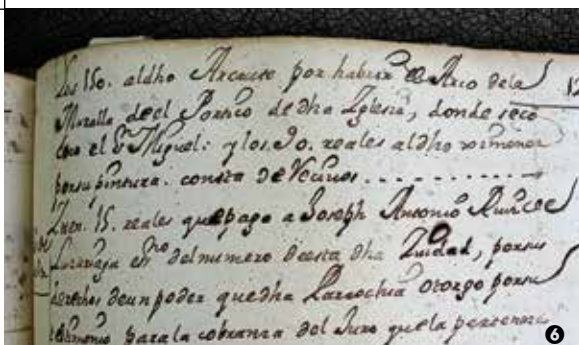 Los 150. aldho por haber el Arco dela
Muralla deel Portico de dha Iglesia, donde seco
loca el Sn Miguel: y los 90. reales aldho
porsu pintura. consta de Recivos
15. reales quepago a Joseph Antonio
essno delnumero deesta dha Ziudad, porsus
derechos deun poder quedha Parrochia otorgo porsu
testimonio parala cobranza del Juro quela pertenece
6